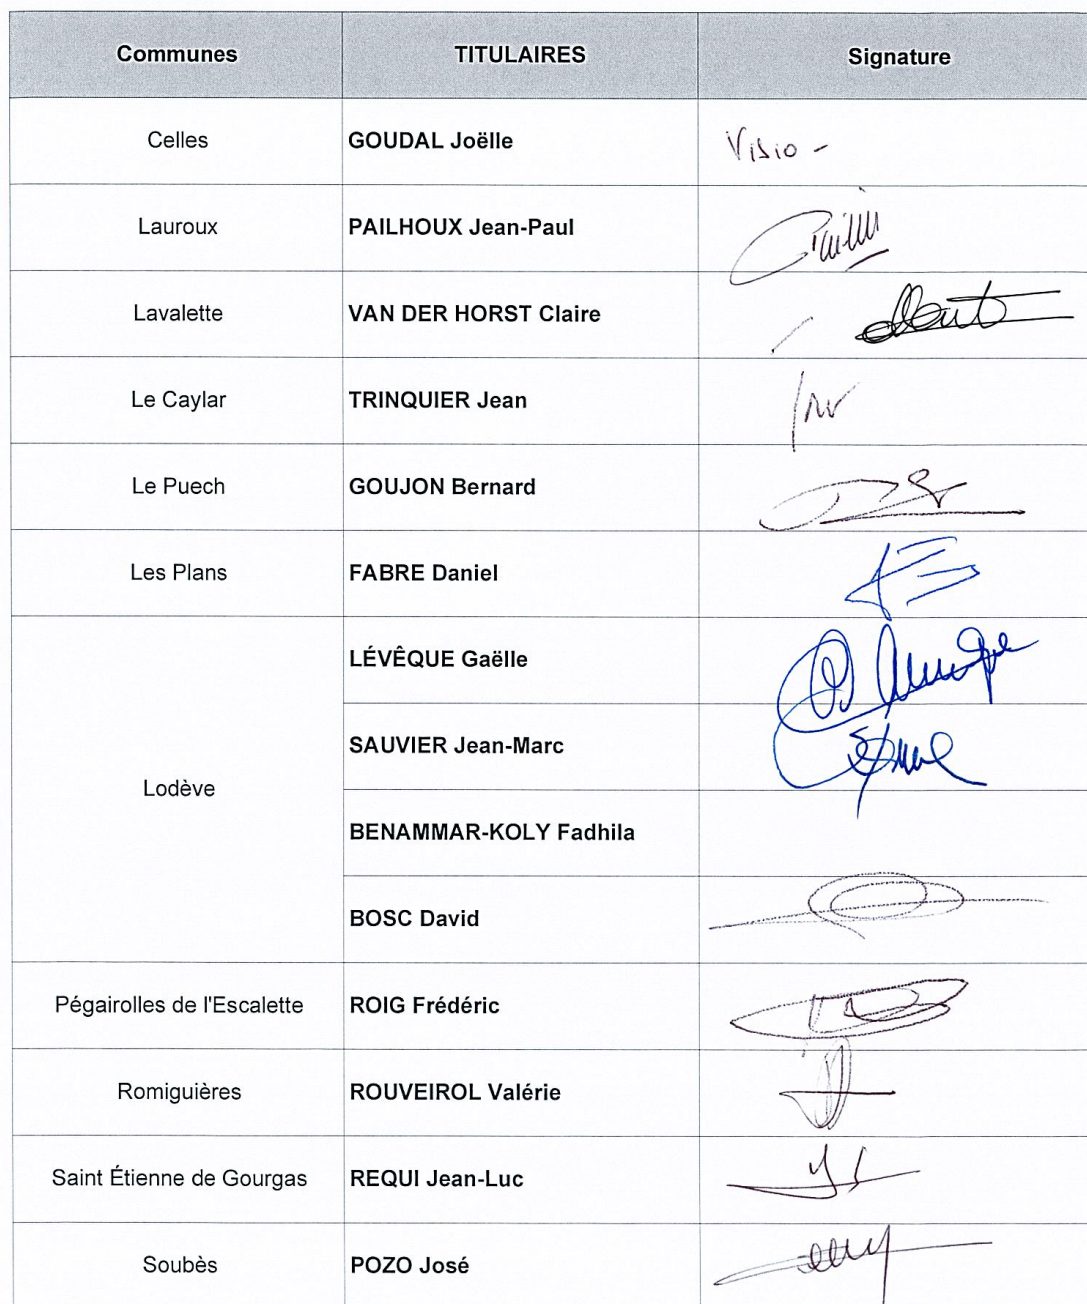 Communes TITULAIRES Signature
Celles GOUDAL Joëlle Visio -
Lauroux PAILHOUX Jean-Paul
Lavalette VAN DER HORST Claire
Le Caylar TRINQUIER Jean
Le Puech GOUJON Bernard
Les Plans FABRE Daniel
LÉVÊQUE Gaëlle
SAUVIER Jean-Marc
Lodève
BENAMMAR-KOLY Fadhila
BOSC David
Pégairolles de l'Escalette ROIG Frédéric
Romiguières ROUVEIROL Valérie
Saint Étienne de Gourgas REQUI Jean-Luc
Soubès POZO José